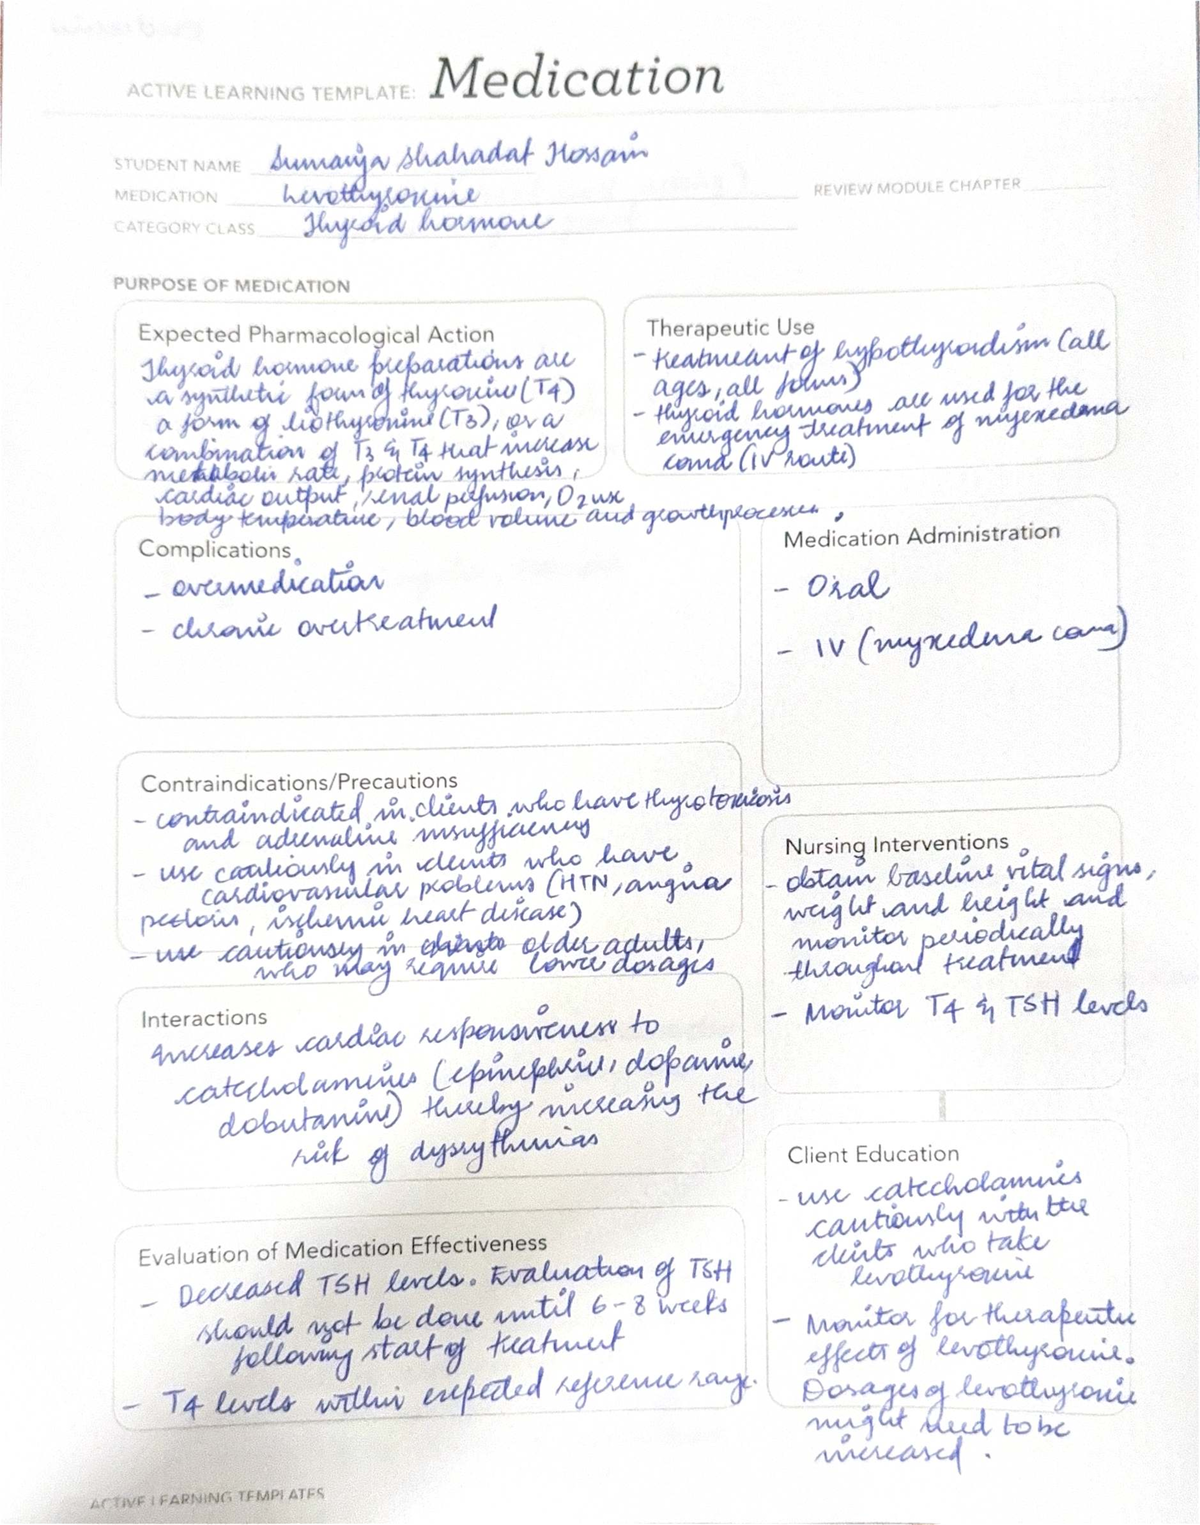 ACTIVE LEARNING TEMPLATE: Medication
STUDENT NAME Sumaiya Shahadat Hossain
MEDICATION Levothyroxine
REVIEW MODULE CHAPTER
CATEGORY CLASS Thyroid hormone
PURPOSE OF MEDICATION
Expected Pharmacological Action
Thyroid hormone preparations are
a synthetic form of thyroxine (T4)
a form of liothyronine (T3), or a
combination of T3 & T4 that increase
metabolic rate, protein synthesis,
cardiac output, renal perfusion, O2 use
body temperature, blood volume and growth processes.
Therapeutic Use
- treatmeant of hypothyroidism (all
ages, all forms)
- thyroid hormones are used for the
emergency treatment of myxedema
coma (IV route)
Complications
- overmedication
- chronic overtreatment
Medication Administration
- Oral
- IV (myxedema coma)
Contraindications/Precautions
- contraindicated in clients who have thyrotoxicosis
and adrenaline insufficiency
- use cautiously in clients who have
cardiovascular problems (HTN, angina
pectoris, ischemic heart disease)
- use cautiously in older adults,
who may require lower dosages
Nursing Interventions
- obtain baseline vital signs,
weight and height and
monitor periodically
throughout treatment
- Monitor T4 & TSH levels
Interactions
Increases cardiac responsiveness to
catecholamines (epinephrine, dopamine,
dobutamine) thereby increasing the
risk of dysrythmias
Client Education
- use catecholamines
cautiously with the
clients who take
levothyroxine
- Monitor for therapeutic
effects of levothyroxine.
Dosages of levothyroxine
might need to be
increased.
Evaluation of Medication Effectiveness
- Decreased TSH levels. Evaluation of TSH
should not be done until 6-8 weeks
following start of treatment
- T4 levels within expected reference range.
ACTIVE LEARNING TEMPLATES